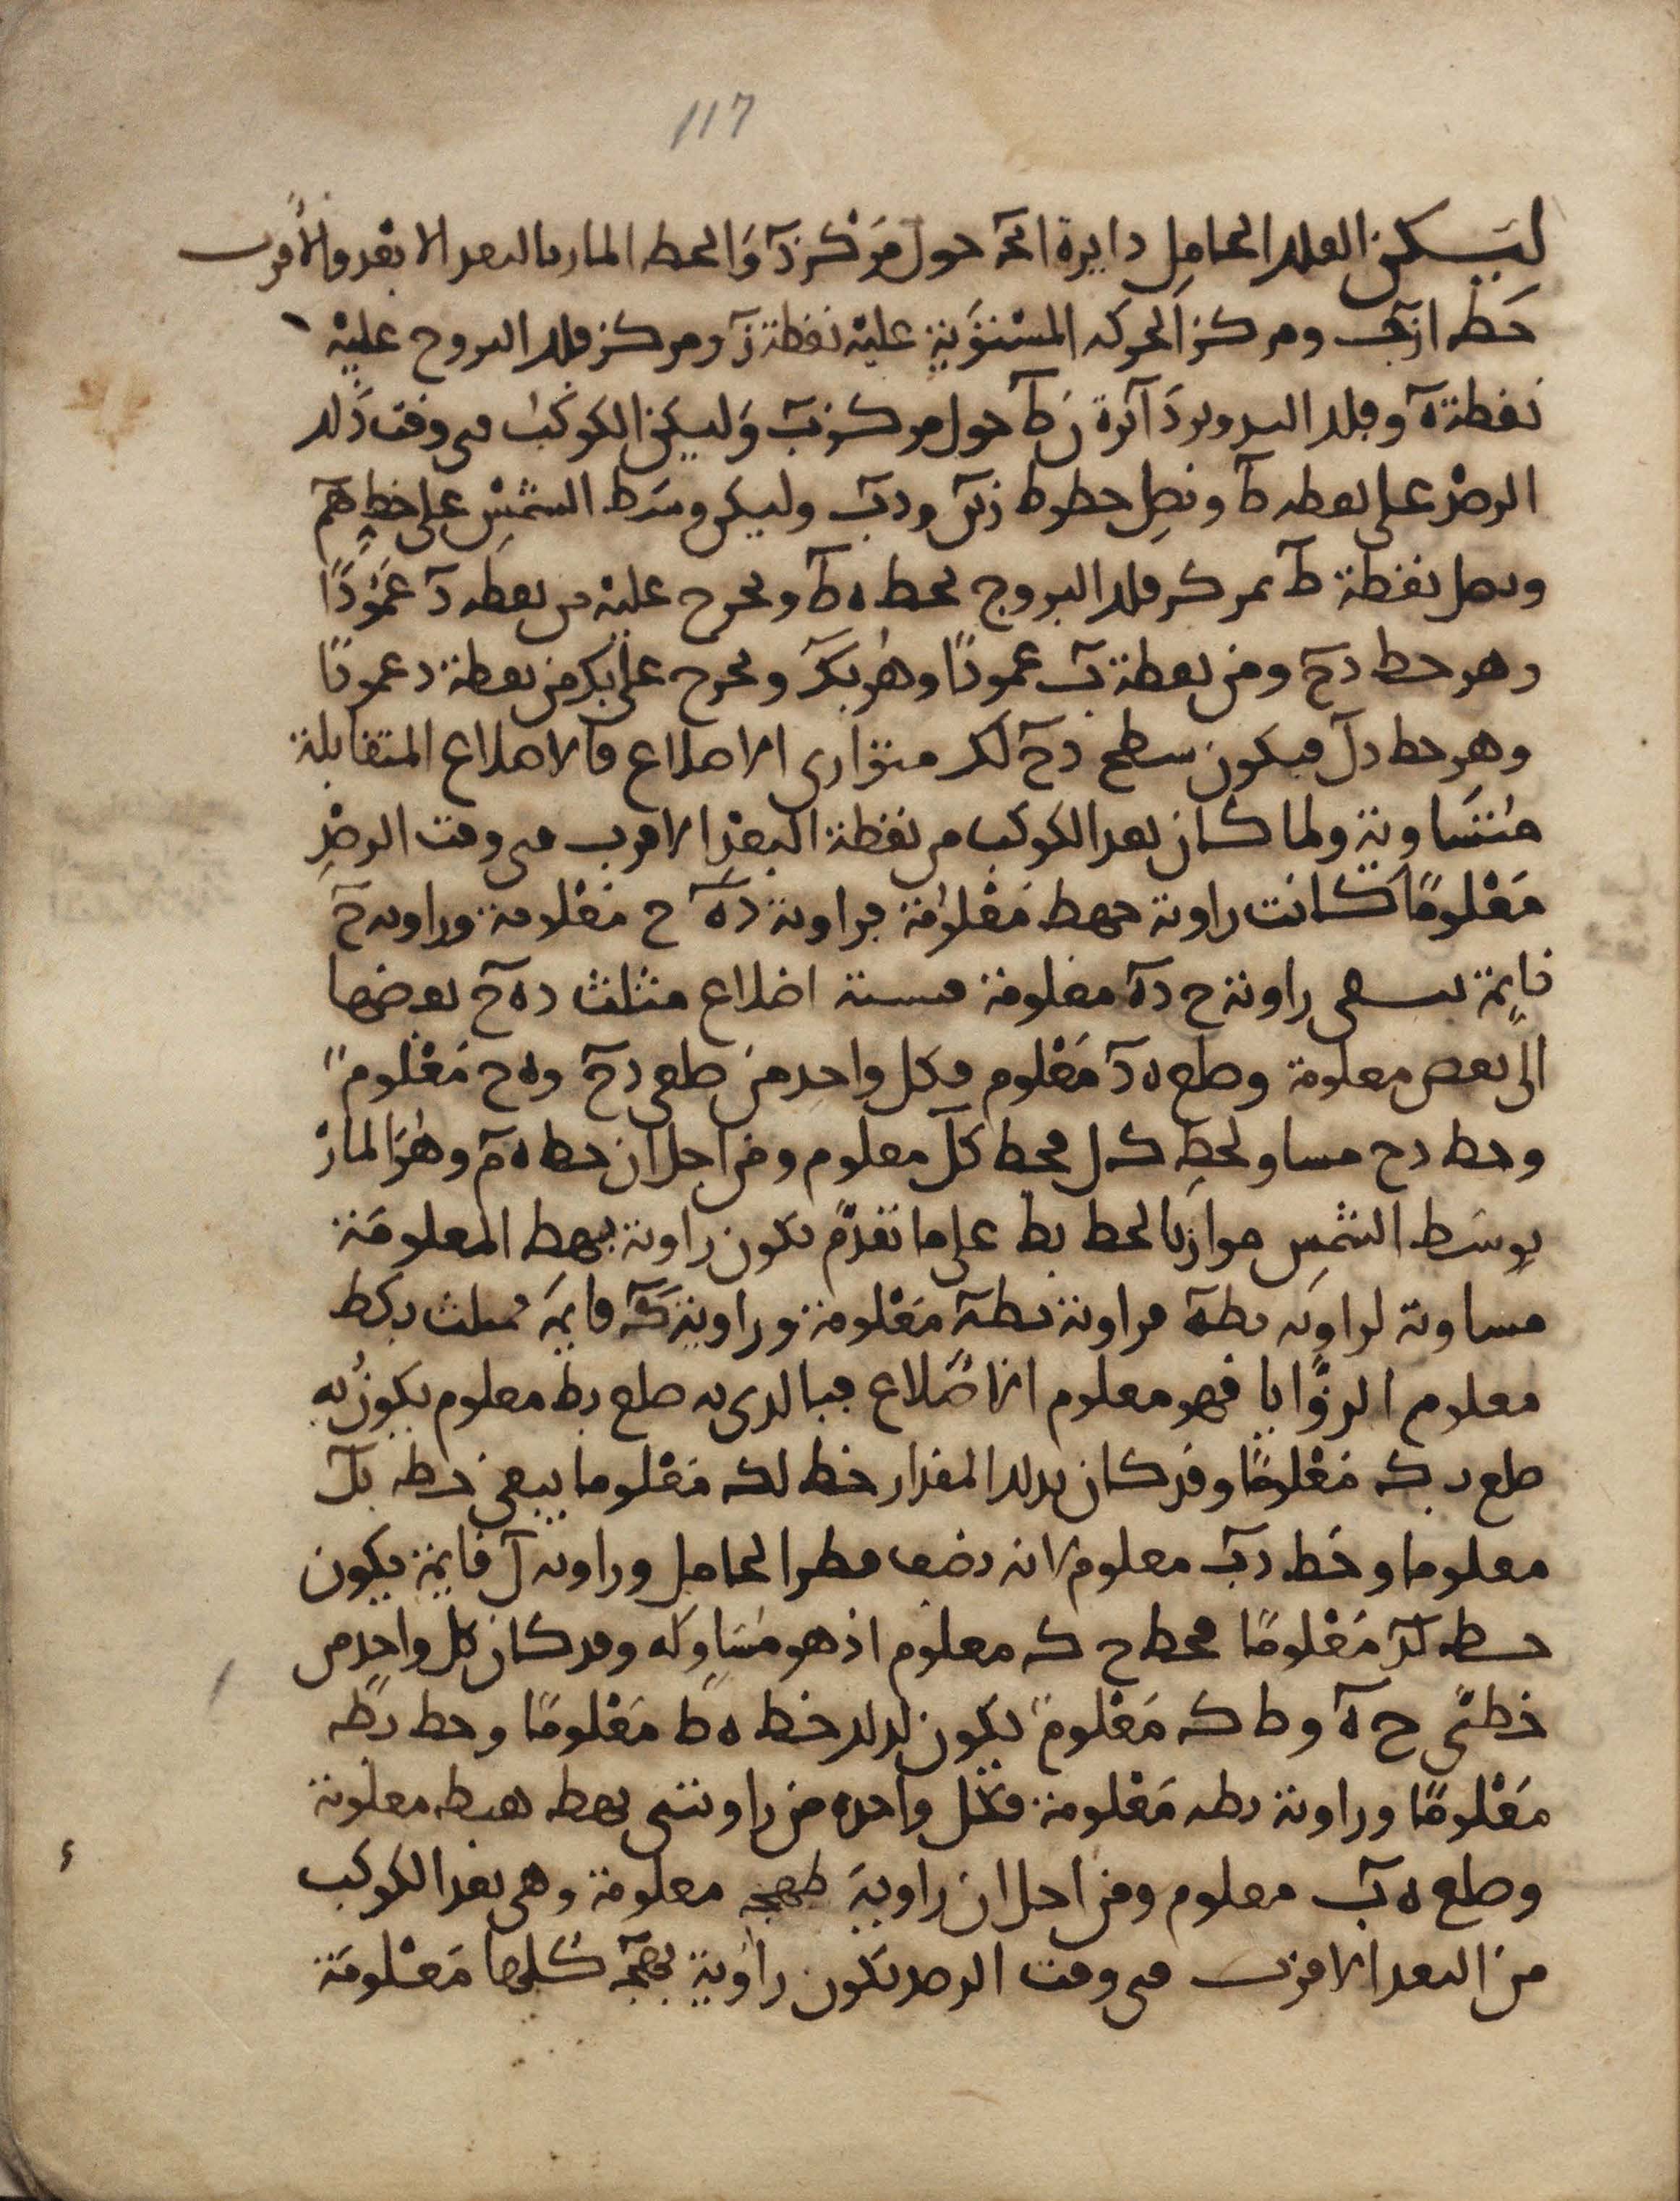 117
ليكن الفلك الحامل دايرة ابج حول مركز د والخط المار بالبعد الابعد والاقرب
خط ازب ومركز الحركه المستوية عليه نقطة ز ومركز فلك البروج عليه
نقطة ه وفلك التدوير دآئرة ز ط حول مركز ب وليكن الكوكب فى وقت ذلك
الرصد على نقطه ط ونصل خطوط زب ودب وليكن وسط الشمس على خط هم
ونصل نقطة ط بمركز فلك البروج بخط ه ط ونخرج عليه من نقطه د عمودًا
وهو خط دح ومن نقطة ب عمودًا وهو بك ونخرج على بك من نقطة د عمودًا
وهو خط دل فيكون سطح دح لك متوازى الاضلاع فالاضلاع المتقابلة
متساوية ولما كان بعد الكوكب من نقطة البعد الاقرب فى وقت الرصد
معْلومًا كانت زاوية جهط معْلومة فزاوية ده ح معْلومة وزاويه ح
قايمة تبقى زاوية ح ده معلومة فنسبة اضلاع مثلث ده ح بعضها
الى بعض معلومة وضلع ه د معْلوم فكل واحد من ضلعى دح وه ح معْلوم
وخط دح مساو لخط ك ل فخط كل معلوم ومن اجل ان خط ه م وهو المار
بوسط الشمس موازيا لخط بط على ما تقدّم تكون زاوية بهط المعلومة
مساوية لزاويه بطه فزاوية بطه معْلومة وزاوية ك قايمة فمثلث بكط
معلوم الزوايا فهو معلوم الاضلاع فبالذى به ضلع بط معلوم يكون به
ضلع ب ك معْلومًا وقد كان بذلك المقدار خط لك معْلوما يبقى خط بل
معلوما وخط دب معلوم لانه نصف قطر الحامل وزاويه ل قايمة يكون
خط لد معْلومًا فخط ح ك معلوم اذ هو مساو له وقد كان كل واحد من
خطى ح ه وط ك معْلومً يكون لذلك خط ه ط معْلومًا وخط بط
معْلومًا وزاوية بطه معْلومة فكل واحده من زاويتى بهط هبط معلومة
وضلع ه ب معلوم ومن اجل ان زاوية طهج معلومة وهى بعد الكوكب
من البعد الاقرب فى وقت الرصد تكون زاوية بهج كلها معْلومة